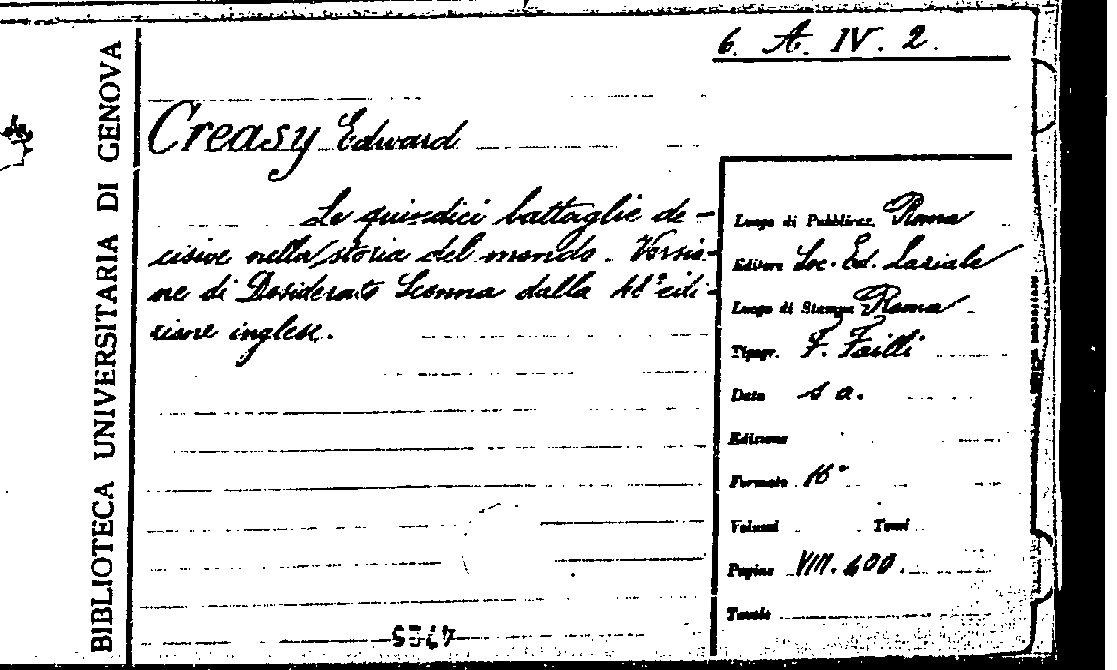 6. A. IV. 2.
BIBLIOTECA UNIVERSITARIA DI GENOVA
Creasy Edward
Le quindici battaglie de-
cisive nella storia del mondo. Versio-
ne di Desiderato Scenna dalla 41ª edi-
zione inglese.
Luogo di Pubblicaz. Roma
Editore Soc. Ed. Laziale
Luogo di Stampa Roma
Tipogr. F. Failli
Data s a.
Edizione
Formato 16°
Volumi Tomi
Pagine VIII. 600.
Tavole